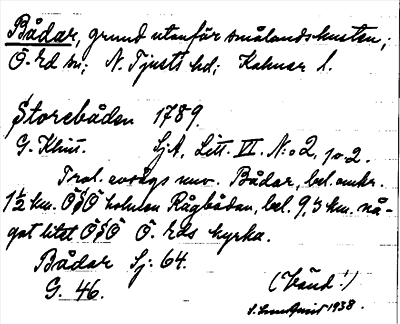 Bådar, grund utanför smålandskusten;
Ö. Ed sn; N. Tjusts hd; Kalmar l.
Storebåden 1789.
G. Klint. SjA, Litt. VI. N:o 2, 10.2.
Trol. avsågs nuv. Bådar, bel. omkr.
1½ km. ÖSÖ holmen Rågbådan, bel. 9,5 km. nå-
got litet ÖSÖ Ö. Eds kyrka.
Bådar Sj: 64.
G. 46.
(Vänd!)
1938.